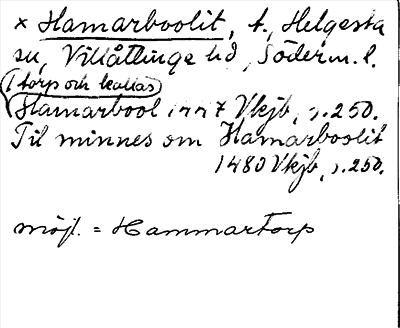 × Hamarboolit, t., Helgesta
sn, Villåttinge hd, Söderm. l.
I torp och kallas
Hamarbool 1447 Vkjb, s. 250.
Til minnes om Hamarboolit
1480 Vkjb, s. 250.
möjl. = Hammartorp